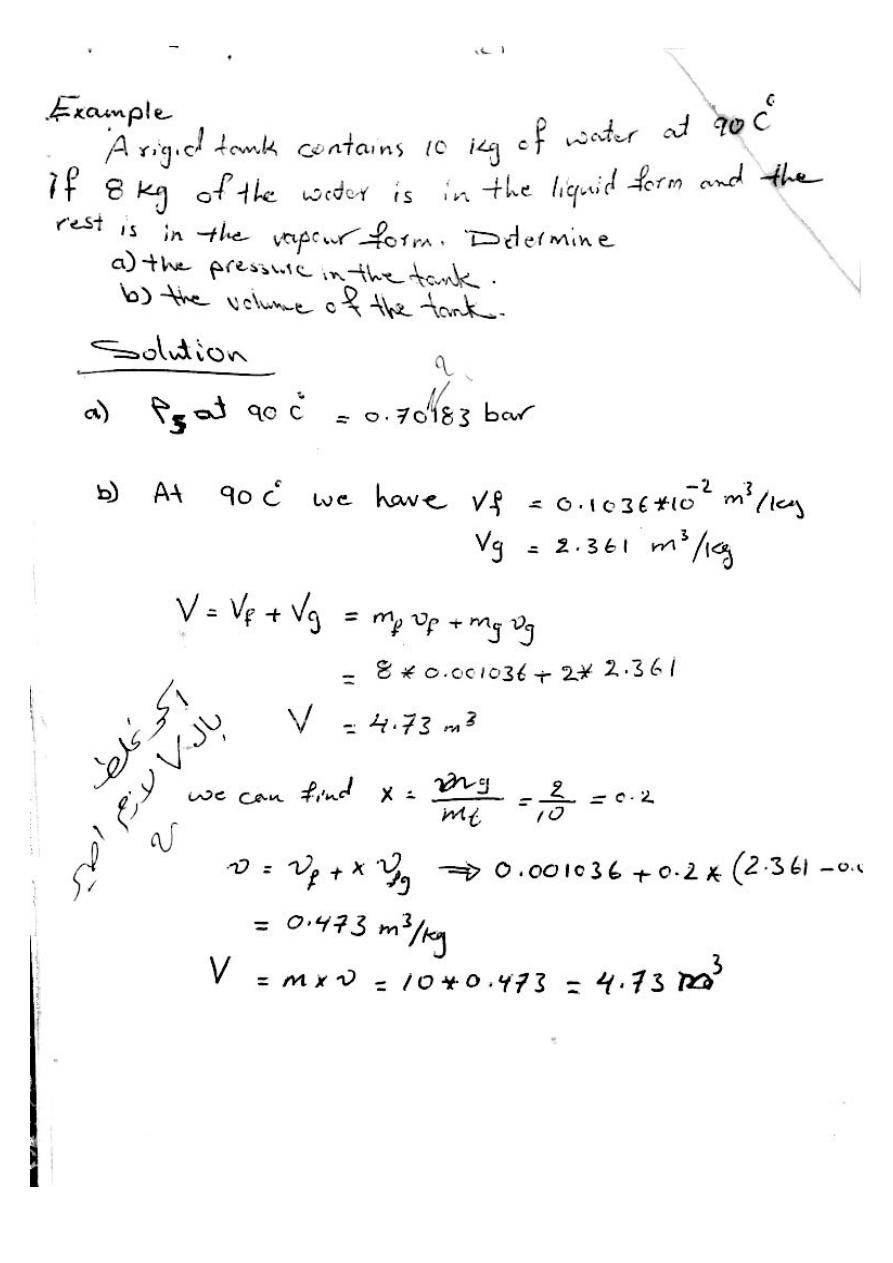 Example
A rigid tank contains 10 kg of water at 90 C°
If 8 kg of the water is in the liquid form and the
rest is in the vapour form. Determine
a) the pressure in the tank.
b) the volume of the tank.
Solution
a) Ps at 90 C° = 0.70183 bar
b) At 90 C° we have Vf = 0.1036*10⁻² m³/kg
Vg = 2.361 m³/kg
V = Vf + Vg = mf vf + mg vg
= 8 * 0.001036 + 2 * 2.361
V = 4.73 m³
بالـ V لازم
v
we can find x = mg/mt = 2/10 = 0.2
v = vf + x vfg ⇒ 0.001036 + 0.2 * (2.361 - 0.
= 0.473 m³/kg
V = m x v = 10 * 0.473 = 4.73 m³